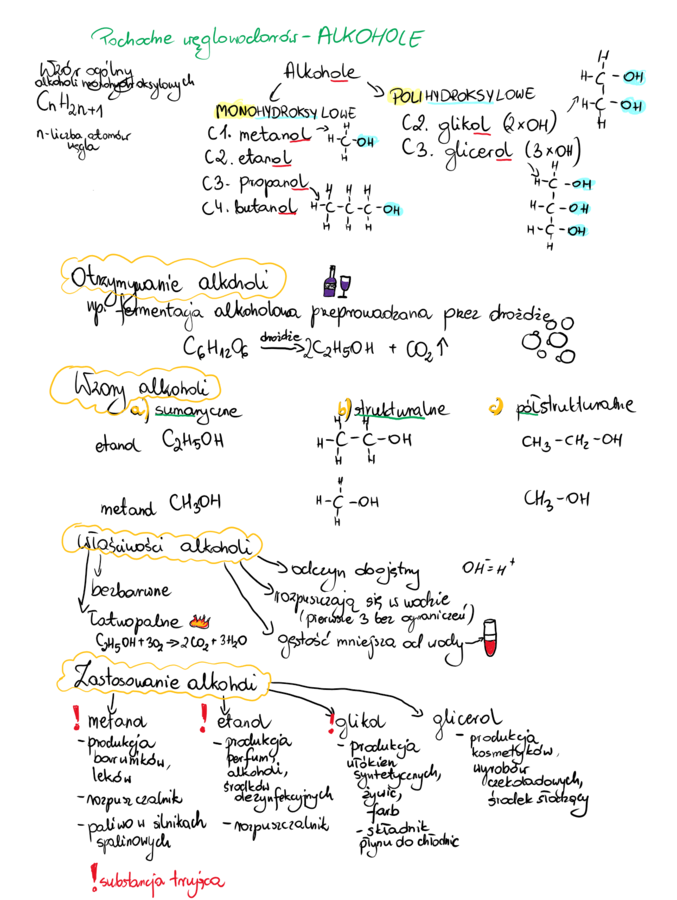 Pochodne węglowodorów - ALKOHOLE
Wzór ogólny
alkoholi monohydroksylowych
CnH2n+1
n-liczba atomów
węgla
Alkohole
MONOHYDROKSYLOWE
C1. metanol
H-C-OH
H
C2. etanol
C3- propanol
H H H
H-C-C-C-OH
H H H
C4. butanol
POLIHYDROKSYLOWE
C2. glikol (2xOH)
H
H-C-OH
H-C-OH
H
C3. glicerol (3xOH)
H
H-C-OH
H-C-OH
H-C-OH
H
Otrzymywanie alkoholi
np. fermentacja alkoholowa przeprowadzana przez drożdże
C6H12O6 drożdże→ 2C2H5OH + CO2↑
Wzory alkoholi
a) sumaryczne b) strukturalne c) półstrukturalne
etanol C2H5OH
H H
H-C-C-OH
H H
CH3-CH2-OH
metanol CH3OH
H
H-C-OH
H
CH3-OH
Właściwości alkoholi
bezbarwne
łatwopalne
C2H5OH+3O2→2CO2+3H2O
odczyn obojętny OH⁻=H⁺
rozpuszczają się w wodzie
(pierwsze 3 bez ograniczeń)
gęstość mniejsza od wody
Zastosowanie alkoholi
! metanol
-produkcja
barwników,
leków
-rozpuszczalnik
-paliwo w silnikach
spalinowych
! etanol
-produkcja
perfum,
alkoholi,
środków
dezynfekcyjnych
-rozpuszczalnik
! glikol
-produkcja
włókien
syntetycznych,
żywic,
farb
-składnik
płynu do chłodnic
glicerol
-produkcja
kosmetyków,
wyrobów
czekoladowych,
środek słodzący
! substancja trująca